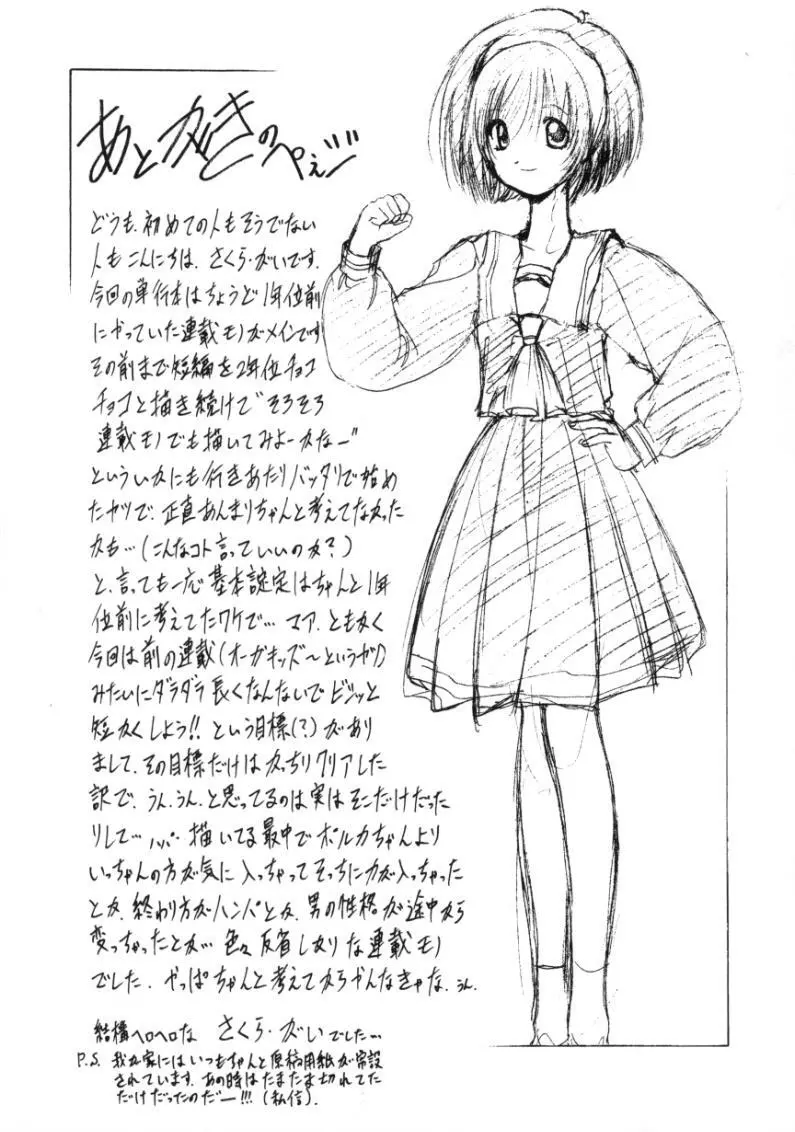 あとがきのぺぇジ
どうも、初めての人もそうでない
人もこんにちは、さくら・がいです。
今回の単行本はちょうど1年位前
にやっていた連載モノがメインです
その前まで短編を2年位チョコ
チョコと描き続けて"そろそろ
連載モノでも描いてみよーかなー"
といういかにも行きあたりバッタリで始め
たヤツで、正直あんまりちゃんと考えてなかった
かも…(こんなコト言っていいのか?)
と、言っても一応基本設定はちゃんと1年
位前に考えてたワケで…マア、ともかく
今回は前の連載(オーガキッズ〜というヤツ)
みたいにダラダラ長くなんないでビシッと
短かくしよう!!という目標(?)があり
まして、その目標だけはかっちりクリアした
訳で、うん、うん、と思ってるのは実はそこだけだった
りして…ハハハ…描いてる最中でポルカちゃんより
いっちゃんの方が気に入っちゃってそっちに力が入っちゃった
とか、終わり方がハンパとか、男の性格が途中から
変っちゃったとか…色々反省しきりな連載モノ
でした、やっぱちゃんと考えてからかんなきゃな、うん、
結構ヘロヘロな さくら・がいでした…
P.S. 我が家にはいつもちゃんと原稿用紙が常設
されています、あの時はたまたま切れてた
だけだったのだー!!!(私信).